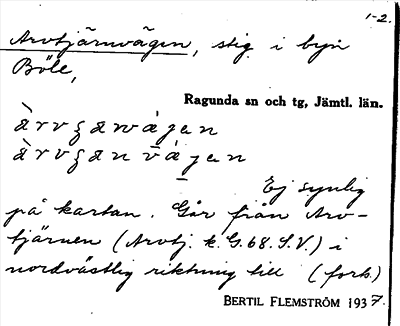 1-2.
Arvtjärnvägen, stig i byn
Böle,
Ragunda sn och tg, Jämtl. län.
Ej synlig
på kartan. Går från Arv-
tjärnen (Arvtj. k. G.68. S.V.) i
nordvästlig riktning till (forts.)
BERTIL FLEMSTRÖM 1937.